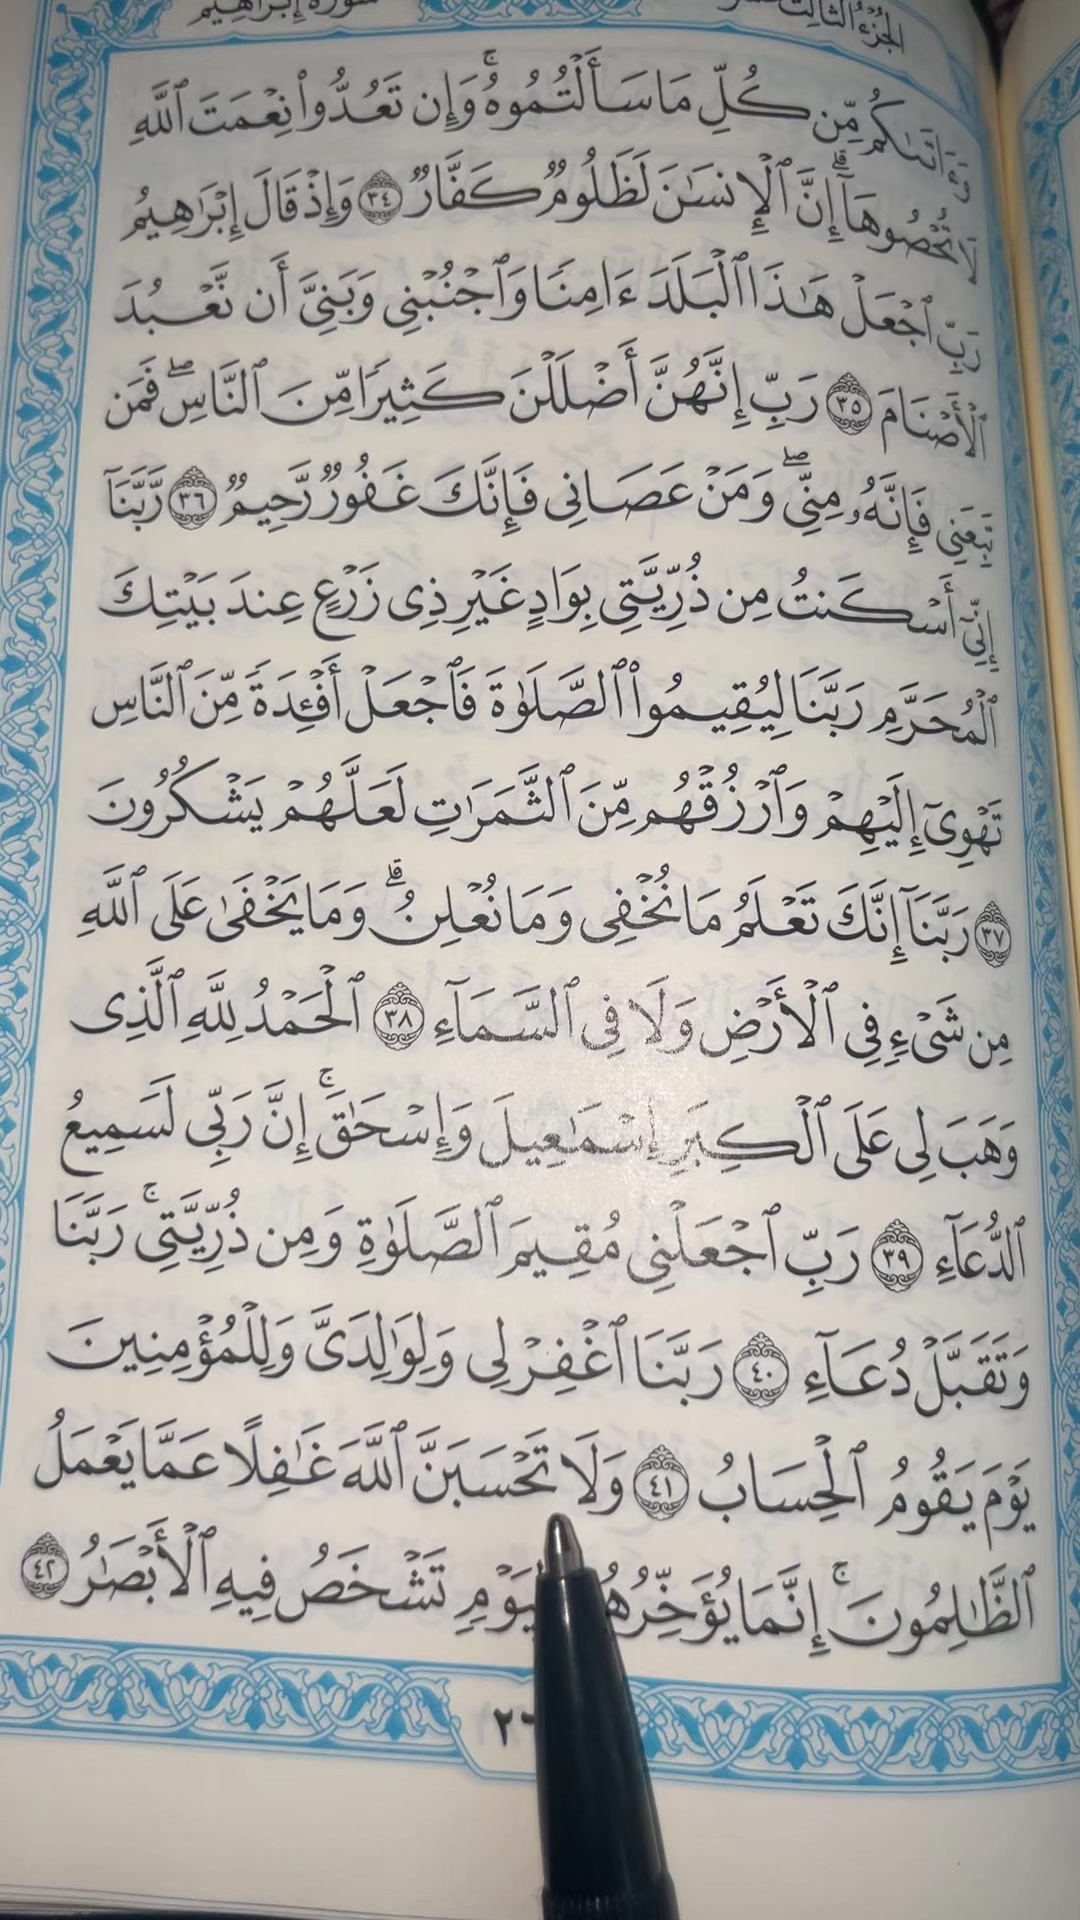 سورة إبراهيم
الجزء الثالث
وَءَاتَىٰكُم مِّن كُلِّ مَا سَأَلْتُمُوهُ ۚ وَإِن تَعُدُّوا۟ نِعْمَتَ ٱللَّهِ
لَا تُحْصُوهَآ ۗ إِنَّ ٱلْإِنسَٰنَ لَظَلُومٌ كَفَّارٌ ٣٤ وَإِذْ قَالَ إِبْرَٰهِيمُ
رَبِّ ٱجْعَلْ هَٰذَا ٱلْبَلَدَ ءَامِنًا وَٱجْنُبْنِى وَبَنِىَّ أَن نَّعْبُدَ
ٱلْأَصْنَامَ ٣٥ رَبِّ إِنَّهُنَّ أَضْلَلْنَ كَثِيرًا مِّنَ ٱلنَّاسِ ۖ فَمَن
تَبِعَنِى فَإِنَّهُۥ مِنِّى ۖ وَمَنْ عَصَانِى فَإِنَّكَ غَفُورٌ رَّحِيمٌ ٣٦ رَّبَّنَآ
إِنِّىٓ أَسْكَنتُ مِن ذُرِّيَّتِى بِوَادٍ غَيْرِ ذِى زَرْعٍ عِندَ بَيْتِكَ
ٱلْمُحَرَّمِ رَبَّنَا لِيُقِيمُوا۟ ٱلصَّلَوٰةَ فَٱجْعَلْ أَفْـِٔدَةً مِّنَ ٱلنَّاسِ
تَهْوِىٓ إِلَيْهِمْ وَٱرْزُقْهُم مِّنَ ٱلثَّمَرَٰتِ لَعَلَّهُمْ يَشْكُرُونَ
٣٧ رَبَّنَآ إِنَّكَ تَعْلَمُ مَا نُخْفِى وَمَا نُعْلِنُ ۗ وَمَا يَخْفَىٰ عَلَى ٱللَّهِ
مِن شَىْءٍ فِى ٱلْأَرْضِ وَلَا فِى ٱلسَّمَآءِ ٣٨ ٱلْحَمْدُ لِلَّهِ ٱلَّذِى
وَهَبَ لِى عَلَى ٱلْكِبَرِ إِسْمَٰعِيلَ وَإِسْحَٰقَ ۚ إِنَّ رَبِّى لَسَمِيعُ
ٱلدُّعَآءِ ٣٩ رَبِّ ٱجْعَلْنِى مُقِيمَ ٱلصَّلَوٰةِ وَمِن ذُرِّيَّتِى ۚ رَبَّنَا
وَتَقَبَّلْ دُعَآءِ ٤٠ رَبَّنَا ٱغْفِرْ لِى وَلِوَٰلِدَىَّ وَلِلْمُؤْمِنِينَ
يَوْمَ يَقُومُ ٱلْحِسَابُ ٤١ وَلَا تَحْسَبَنَّ ٱللَّهَ غَٰفِلًا عَمَّا يَعْمَلُ
ٱلظَّٰلِمُونَ ۚ إِنَّمَا يُؤَخِّرُهُمْ لِيَوْمٍ تَشْخَصُ فِيهِ ٱلْأَبْصَٰرُ ٤٢